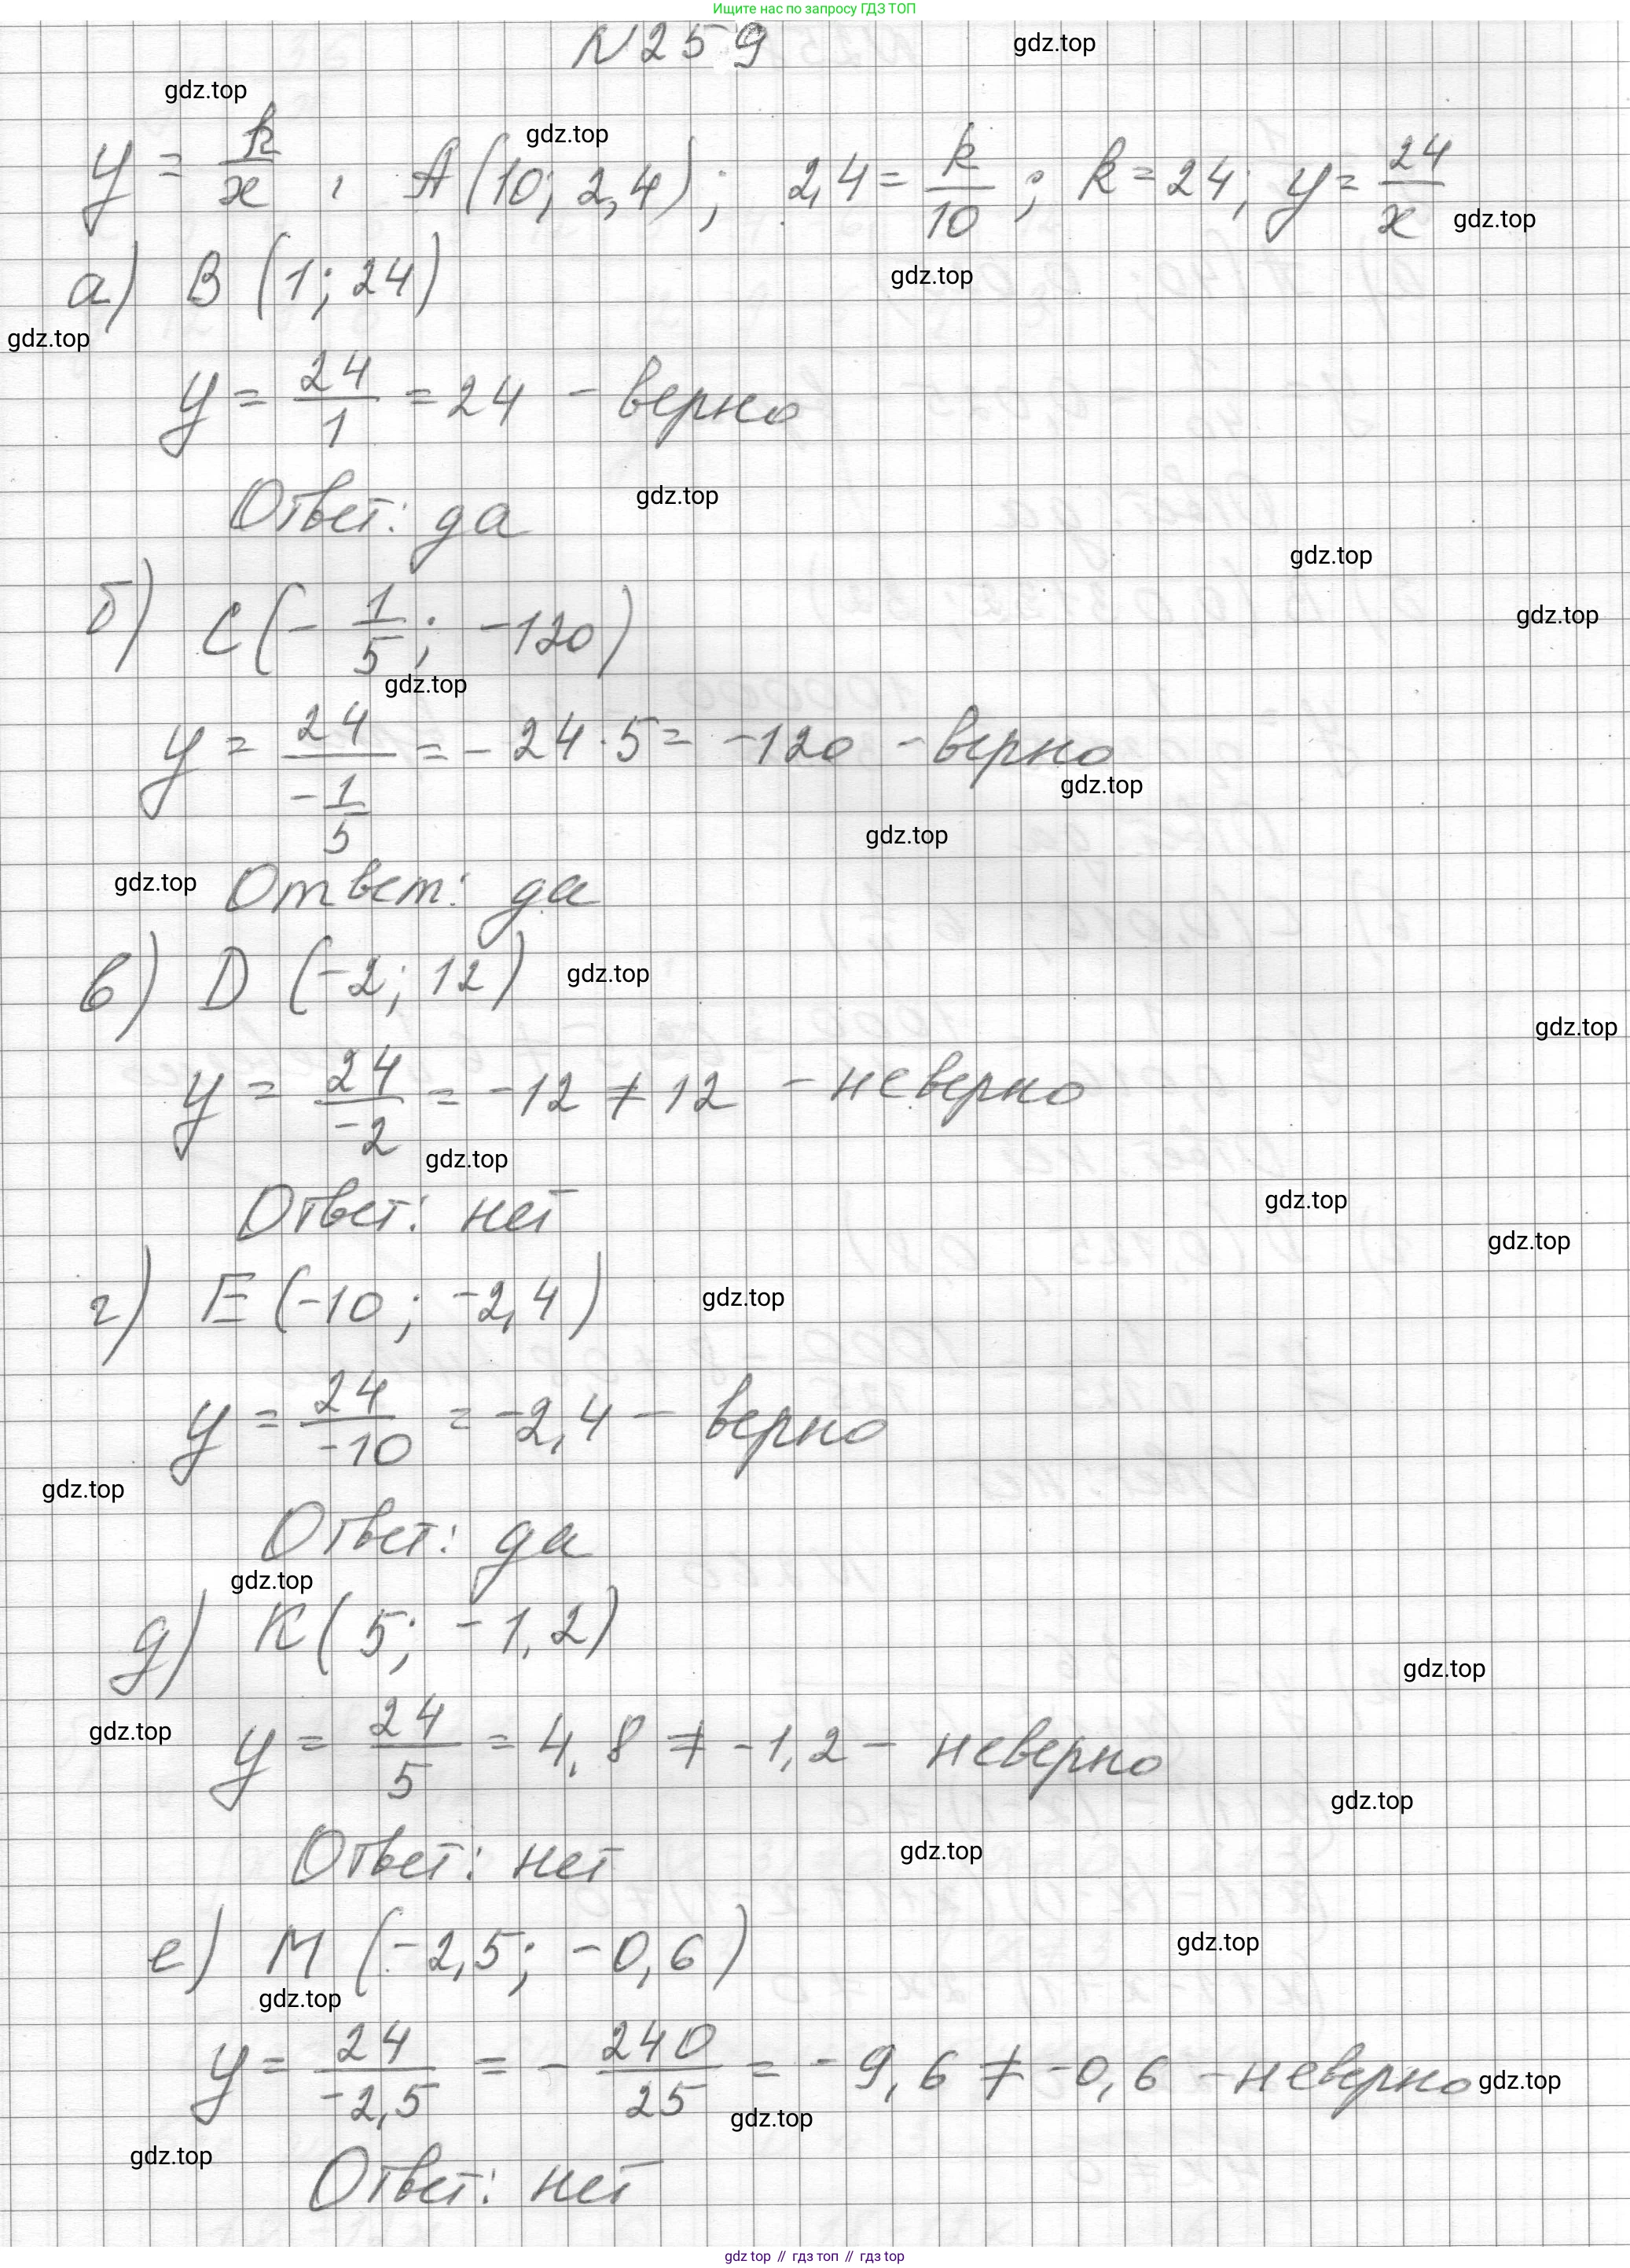 Ищите нас по запросу ГДЗ ТОП
N259
gdz.top
gdz.top
gdz.top
y = k/x , A(10; 2,4); 2,4 = k/10 ; k = 24; y = 24/x
gdz.top
gdz.top
а) B (1; 24)
gdz.top
y = 24/1 = 24 - верно
gdz.top
Ответ: да
gdz.top
б) C(-1/5; -120)
gdz.top
gdz.top
y = 24/(-1/5) = -24·5 = -120 - верно
gdz.top
gdz.top
gdz.top
Ответ: да
в) D (-2; 12)
gdz.top
gdz.top
y = 24/-2 = -12 ≠ 12 - неверно
gdz.top
Ответ: нет
gdz.top
gdz.top
г) E (-10; -2,4)
gdz.top
y = 24/-10 = -2,4 - верно
gdz.top
Ответ: да
gdz.top
д) K(5; -1,2)
gdz.top
gdz.top
y = 24/5 = 4,8 ≠ -1,2 - неверно
gdz.top
Ответ: нет
gdz.top
е) M (-2,5; -0,6)
gdz.top
gdz.top
y = 24/-2,5 = - 240/25 = -9,6 ≠ -0,6 - неверно
gdz.top
gdz.top
gdz.top
Ответ: нет
gdz top // гдз топ // gdz top